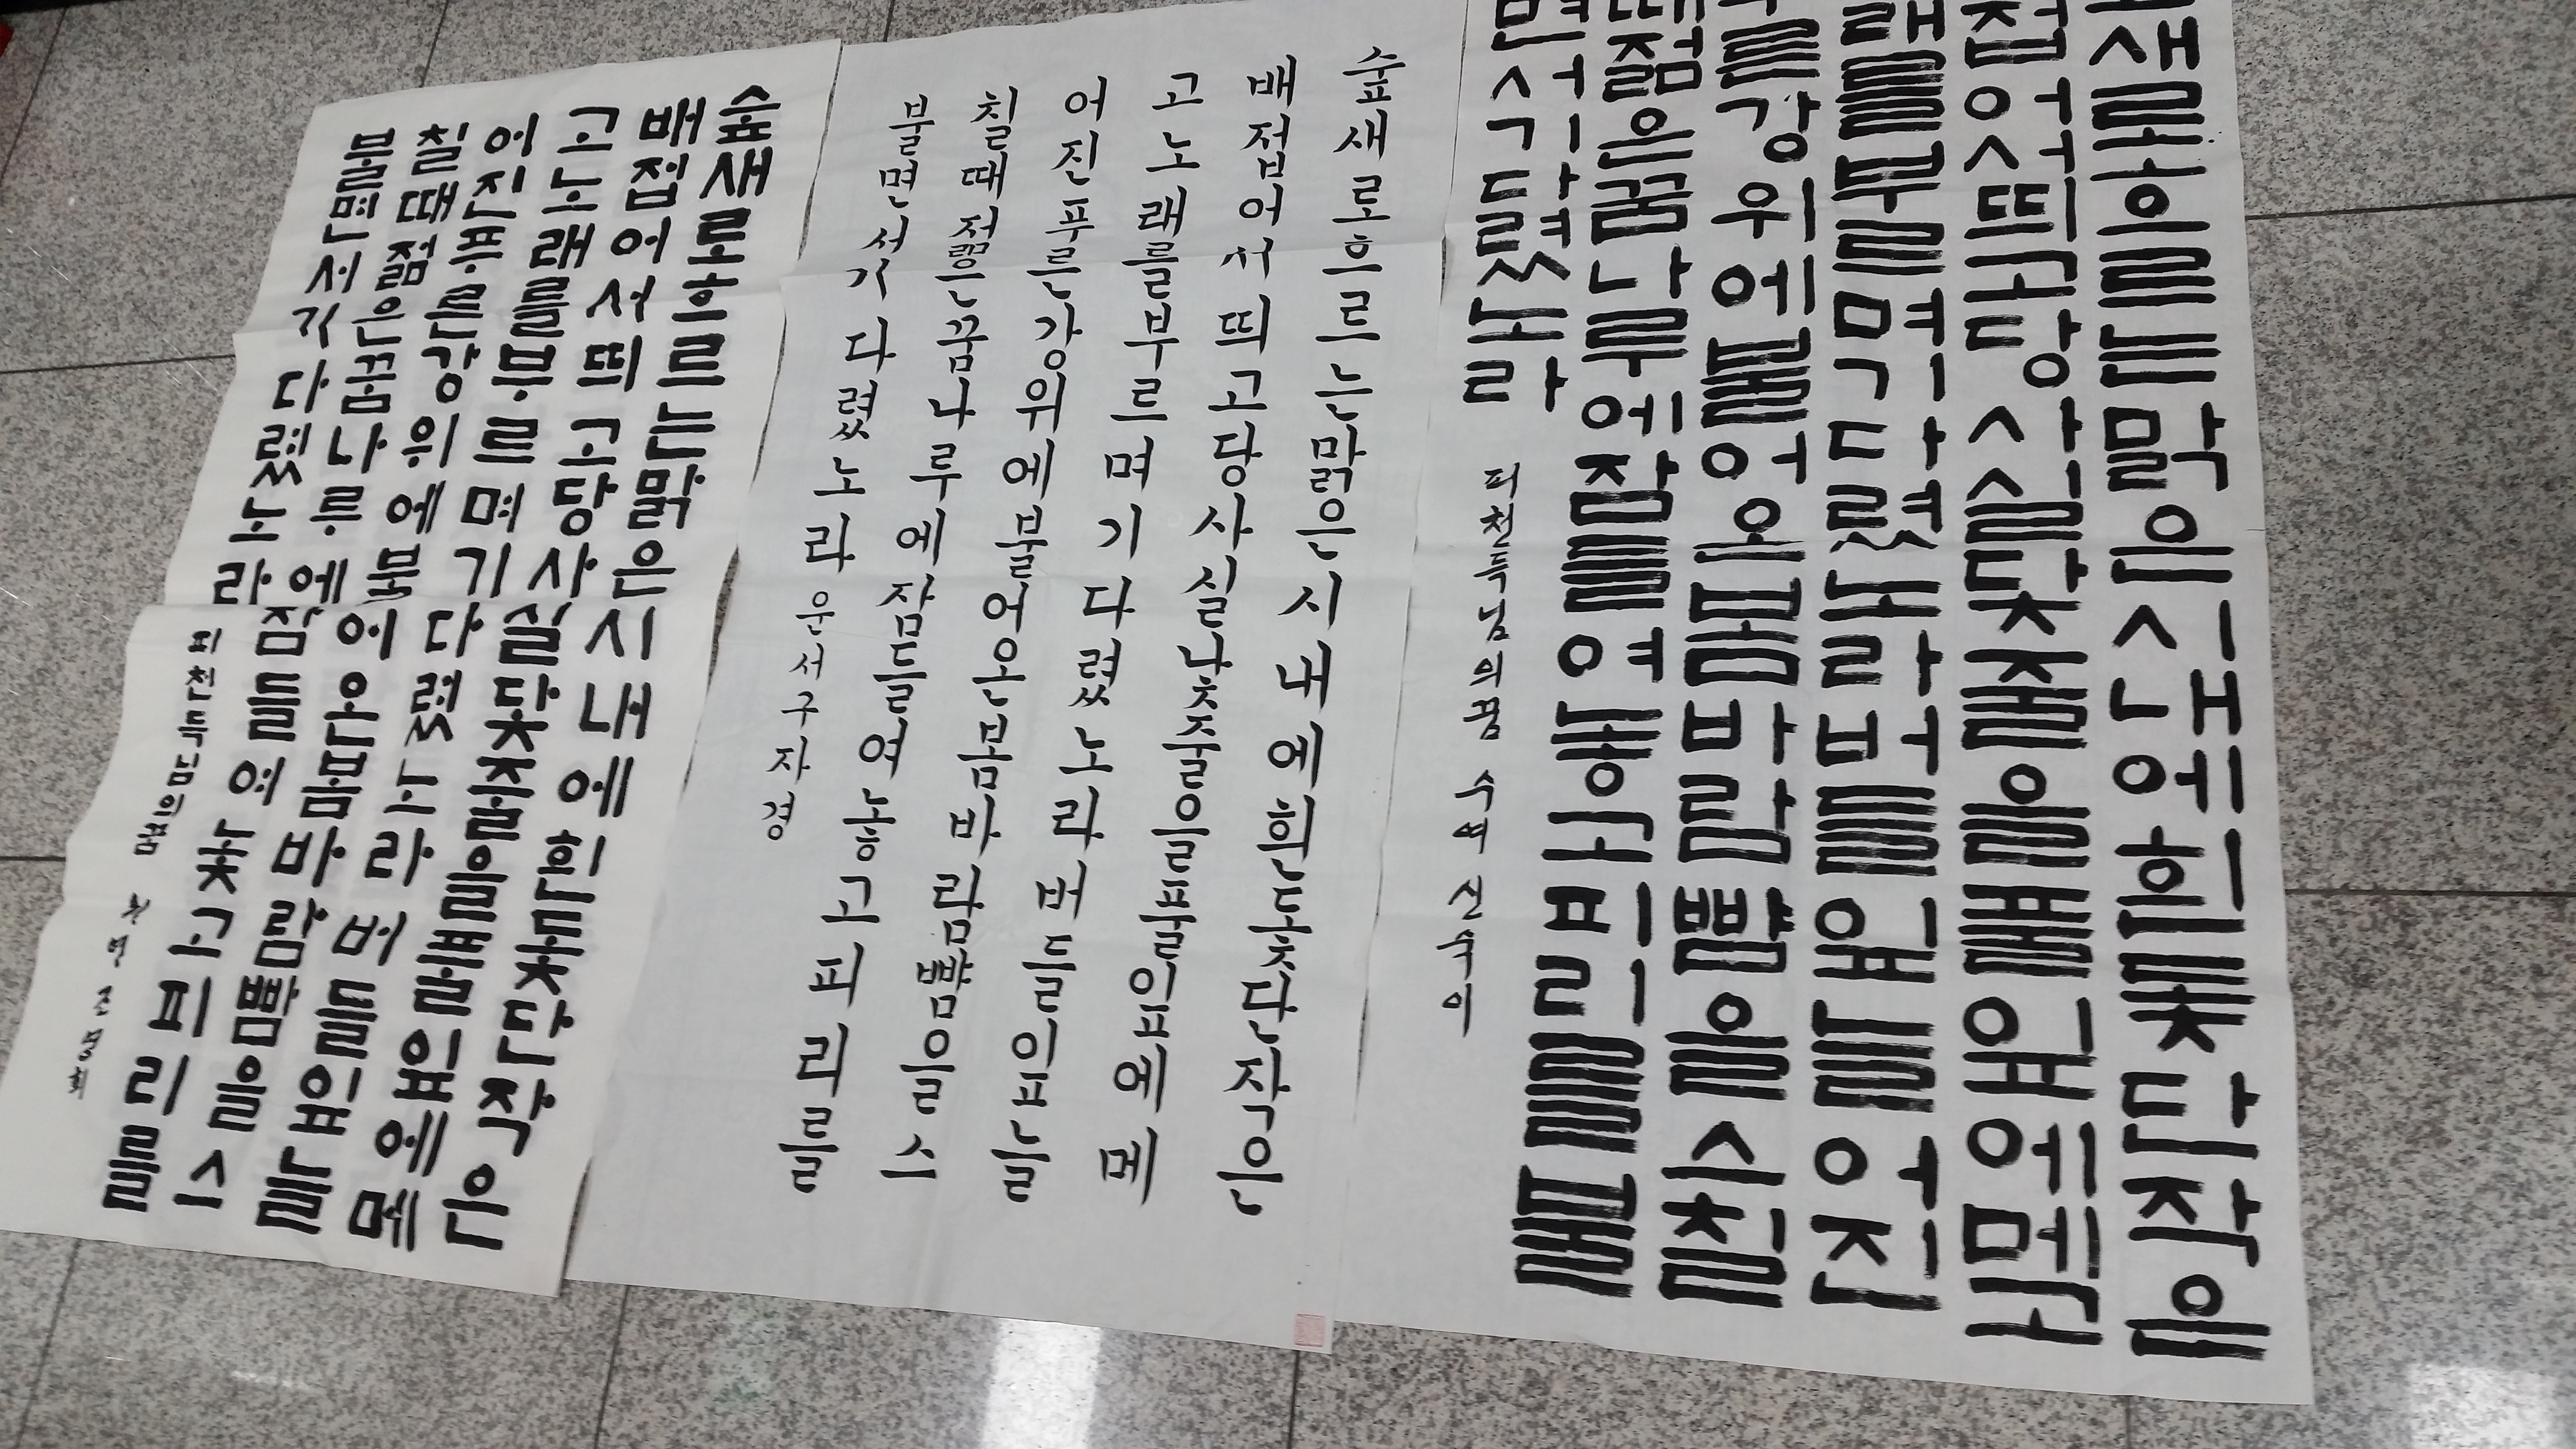 새로흐르는맑은시내에흰돛단작은
접어서띄고당사실닻줄을풀잎에메고
래를부르며기다렸노라버들잎늘어진
른강위에불어온봄바람뺨을스칠
때젊은꿈나루에잠들여놓고피리를불
면서기다렸노라
피천득님의꿈
숲새로흐르는맑은시내에흰돛단작은
배접어서띄고당사실닻줄을풀잎에메
고노래를부르며기다렸노라버들잎늘
어진푸른강위에불어온봄바람뺨을스
칠때젊은꿈나루에잠들여놓고피리를
불면서기다렸노라 운서구자경
숲새로흐르는맑은시내에흰돛단작은
배접어서띄고당사실닻줄을풀잎에메
고노래를부르며기다렸노라버들잎늘
어진푸른강위에불어온봄바람뺨을스
칠때젊은꿈나루에잠들여놓고피리를
불면서기다렸노라
피천득님의꿈